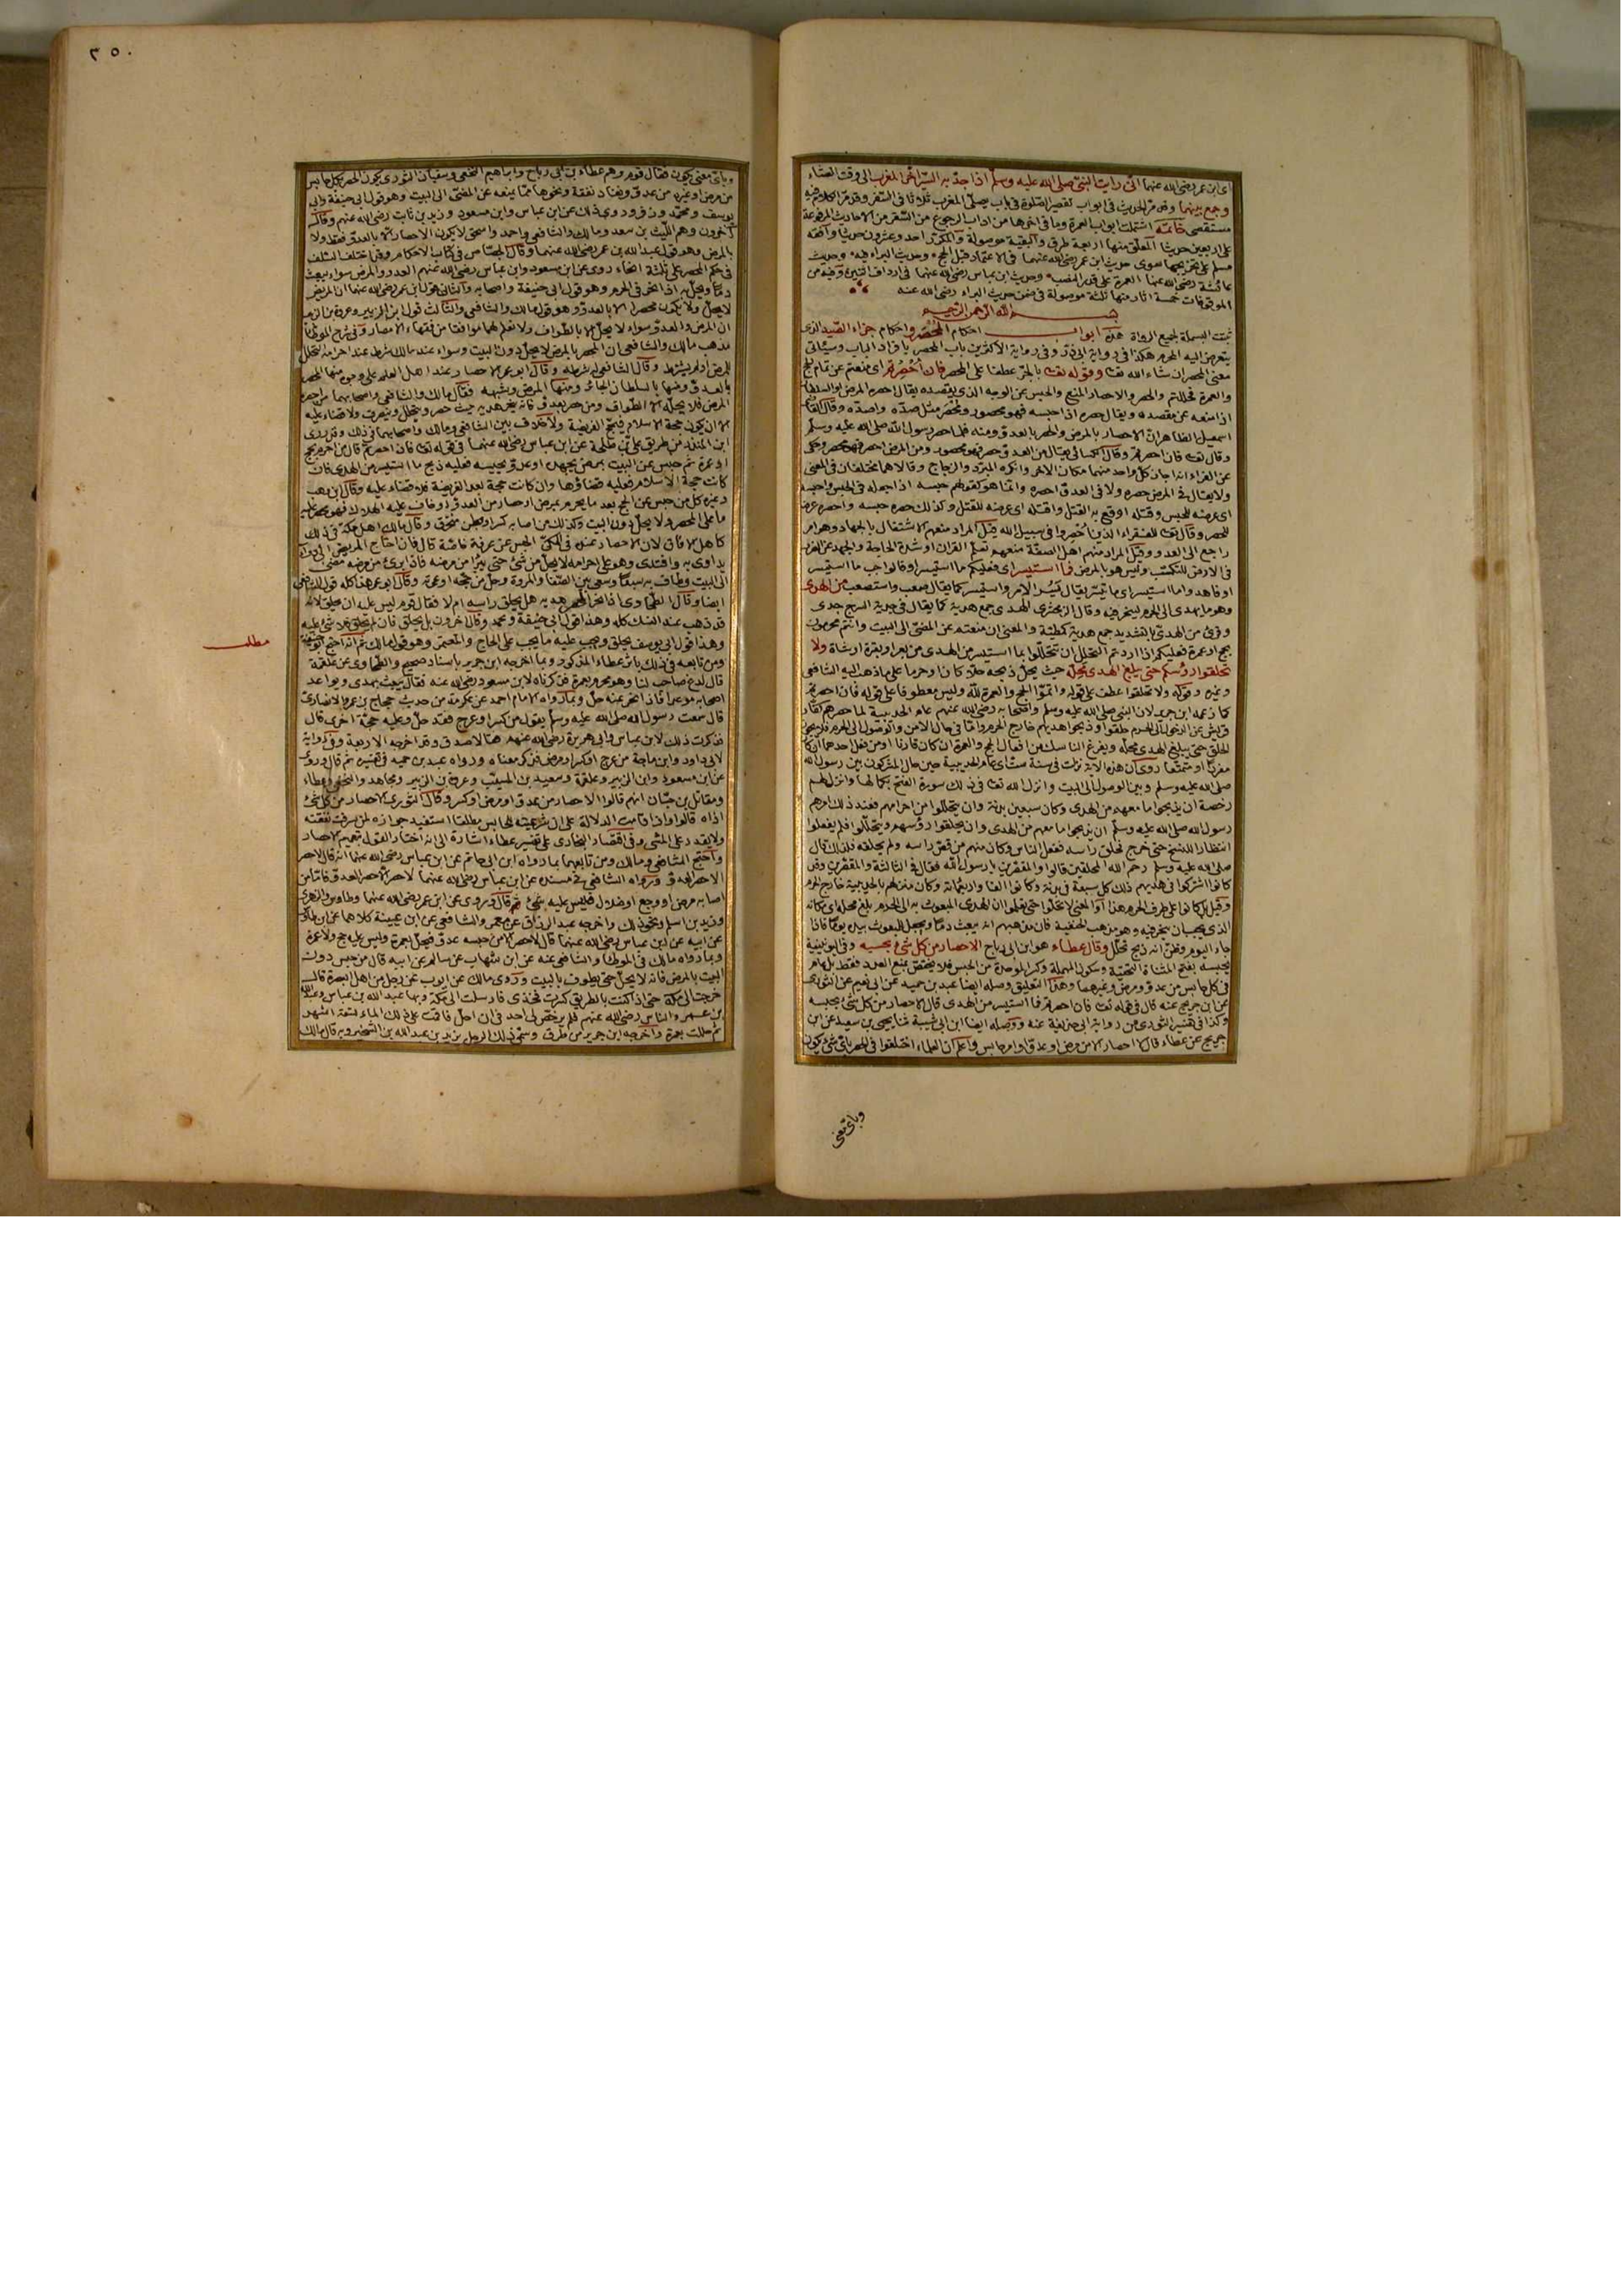 اى ابن عمر رضى الله عنهما انى رايت النبى صلى الله عليه وسلم اذا جدّ به السير اخر المغرب الى وقت العشاء
وجمع بينهما وقد مرّ الحديث فى ابواب تقصير الصلوة فى باب يصلى المغرب ثلاثا فى السفر وقد مرّ الكلام فيه
مستقصى خاتمة اشتملت ابواب العمرة وما فى اخرها من اداب الرجوع من السفر من الاحاديث المرفوعة
على اربعين حديثا المعلق منها اربعة طرق والبقية موصولة والمكرر احد وعشرون حديثا وافقه
مسلم على تخريجها سوى حديث ابن عمر رضى الله عنهما فى الاعتمار قبل الحج وحديث البراء فيه وحديث
عائشة رضى الله عنها العمرة على قدر النصب وحديث ابن عباس رضى الله عنهما فى ارداف اثنين وفيه من
الموقوفات خمسة اثار منها ثلثة موصولة فى ضمن حديث البراء رضى الله عنه
بسم الله الرحمن الرحيم
ثبتت البسملة لجميع الرواة هذه ابواب احكام المحصر واحكام جزاء الصيد الذى
يتعرض اليه المحرم هكذا فى رواية ابى ذر وفى رواية الاكثرين باب المحصر بافراد الباب وسيأتى
معنى المحصر ان شاء الله تعالى وقوله تعالى بالجر عطفا على المحصر فان احصرتم اى منعتم عن تمام الحج
والعمرة فحللتم والحصر والاحصار المنع والحبس عن الوجه الذى يقصده يقال احصره المرض او السلطان
اذا منعه عن مقصده ويقال حصره اذا حبسه فهو محصور ومحصر مثل صدّه واصدّه وقال القاضى
اسمعيل الظاهر ان الاحصار بالمرض والحصر بالعدو ومنه فلما احصر رسول الله صلى الله عليه وسلم
وقال تعالى فان احصرتم وقال الكسائى يقال من العدو حصر فهو محصور ومن المرض احصر فهو محصر وحكى
عن الفراء انه اجاز كل واحد منهما مكان الاخر وانكره المبرد والزجاج وقالا هما مختلفان فى المعنى
ولا يقال فى المرض حصره ولا فى العدو احصره وانما هو كقولهم حبسه اذا جعله فى الحبس واحبسه
اى عرضه للحبس وقتله اوقع به القتل واقتله اى عرضه للقتل وكذلك حصره حبسه واحصره عرضه
للحصر وقال تعالى للفقراء الذين احصروا فى سبيل الله قيل المراد منعهم الاشتغال بالجهاد وهو امر
راجع الى العدو وقيل المراد منهم اهل الصفة منعهم تعلم القران او شدة الحاجة والجهد عن الضرب
فى الارض للتكسب وليس هو بالمرض فما استيسر اى فعليكم ما استيسر او فالواجب ما استيسر
او فاهدوا ما استيسر اى ما تيسّر يقال يسر الامر واستيسر كما يقال صعب واستصعب من الهدى
وهو ما يهدى الى الحرم لينحر فيه وقال الزمخشرى الهدى جمع هدية كما يقال فى جدية السرج جدى
وقرئ من الهدىّ بالتشديد جمع هدية كمطية والمعنى ان منعتم عن المضىّ الى البيت وانتم محرمون
بحج او عمرة فعليكم اذا اردتم التحلل ان تتحللوا بما استيسر من الهدى من بعير او بقرة او شاة ولا
تحلقوا رؤسكم حتى يبلغ الهدى محلّه حيث يحل ذبحه حلّا كان او حرما على ما ذهب اليه الشافعى
وغيره وقوله ولا تحلقوا عطف على قوله واتمّوا الحج والعمرة لله وليس معطوفا على قوله فان احصرتم
كما زعمه ابن جرير لان النبى صلى الله عليه وسلم واصحابه رضى الله عنهم عام الحديبية لما حصرهم كفار
قريش عن الدخول الى الحرم حلقوا وذبحوا هديهم خارج الحرم واما فى حال الامن والوصول الى الحرم فلا يجوز
الحلق حتى يبلغ الهدى محلّه ويفرغ الناسك من افعال الحج والعمرة ان كان قارنا او من فعل احدهما ان كان
مفردا او متمتعا روى ان هذه الاية نزلت فى سنة ست اى عام الحديبية حين حال المشركون بين رسول الله
صلى الله عليه وسلم وبين الوصول الى البيت وانزل الله تعالى فى ذلك سورة الفتح بكمالها وانزل لهم
رخصة ان يذبحوا ما معهم من الهدى وكان سبعين بدنة وان يتحللوا من احرامهم فعند ذلك امرهم
رسول الله صلى الله عليه وسلم ان يذبحوا ما معهم من الهدى وان يحلقوا رؤسهم ويتحللوا فلم يفعلوا
انتظارا للنسخ حتى خرج فحلق راسه ففعل الناس وكان منهم من قصّر راسه ولم يحلقه فلذلك قال
صلى الله عليه وسلم رحم الله المحلقين قالوا والمقصّرين يا رسول الله فقال فى الثالثة والمقصرين وقد
كانوا اشتركوا فى هديهم ذلك كل سبعة فى بدنة وكانوا الفا واربعمائة وكان منزلهم بالحديبية خارج الحرم
وقيل بل كانوا على طرف الحرم هذا او المعنى لا تحلّوا حتى تعلموا ان الهدى المبعوث به الى الحرم بلغ محله اى مكانه
الذى يجب ان ينحر فيه وهو مذهب الحنفية فان مذهبهم انه يبعث دما ويجعل للمبعوث بيده يوما فاذا
جاء اليوم وظن انه ذبح تحلّل وقال عطاء هو ابن ابى رباح الاحصار من كل شئ بحسبه وفى اليونينية
يحبسه بفتح المثناة التحتية وسكون المهملة وكسر الموحدة من الحبس فلا يختص بمنع العدو فقط بل هو عام
فى كل حابس من عدو ومرض وغيرهما وهذا التعليق وصله ايضا عبد بن حميد عن ابى نعيم عن الثورى
عن ابن جريج عنه قال فى قوله تعالى فان احصرتم فما استيسر من الهدى قال الاحصار من كل شئ يحبسه
وكذا فى تفسير الثورى من رواية ابى حذيفة عنه ووصله ايضا ابن ابى شيبة ثنا يحيى بن سعيد عن ابن
جريج عن عطاء قال لا احصار الا من مرض او عدو او امر حابس واعلم ان العلماء اختلفوا فى الحصر باى شئ يكون
وباى معنى
٢٥٠
وباى معنى يكون فقال قوم وهم عطاء بن ابى رباح وابراهيم النخعى وسفيان الثورى يكون الحصر بكل حابس
من مرض او غيره من عدو ونفاد نفقة ونحوها مما يمنعه عن المضىّ الى البيت وهو قول ابى حنيفة وابى
يوسف ومحمد وزفر وروى ذلك عن ابن عباس وابن مسعود وزيد بن ثابت رضى الله عنهم وقال
آخرون وهم الليث بن سعد ومالك والشافعى واحمد واسحق لا يكون الاحصار الا بالعدو فقط ولا
بالمرض وهو قول عبد الله بن عمر رضى الله عنهما وقال الجصاص فى كتاب الاحكام وقد اختلف السلف
فى حكم المحصر على ثلثة انحاء روى عن ابن مسعود وابن عباس رضى الله عنهم العدو والمرض سواء يبعث
دما ويحل به اذا نحر فى الحرم وهو قول ابى حنيفة واصحابه والثانى قول ابن عمر رضى الله عنهما ان المريض
لا يحلّ ولا يكون محصرا الا بالعدو وهو قول مالك والشافعى والثالث قول ابن الزبير وعروة بن الزبير
ان المرض والعدو سواء لا يحلّ الا بالطواف ولا نعلم لهما موافقا من فقهاء الامصار وفى شرح الموطأ
مذهب مالك والشافعى ان المحصر بالمرض لا يحلّ دون البيت وسواء عند مالك شرط عند احرامه التحلل
للمرض او لم يشترط وقال الشافعى له شرطه وقال ابو عمر الاحصار عند اهل العلم على وجوه منها المحصر
بالعدو ومنها بالسلطان الجائر ومنها المرض وشبهه فقال مالك والشافعى واصحابهما من احصره
المرض فلا يحلّه الا الطواف ومن حصر بعدو فانه ينحر هديه حيث حصر ويتحلل وينصرف ولا قضاء عليه
الا ان يكون حجة الاسلام فيحج الفريضة ولا خلاف بين الشافعى ومالك واصحابهما فى ذلك وقد روى
ابن المنذر من طريق على بن طلحة عن ابن عباس رضى الله عنهما فى قوله تعالى فان احصرتم قال من احرم بحج
او عمرة ثم حبس عن البيت بمرض يجهده او عدو يحبسه فعليه ذبح ما استيسر من الهدى فان
كانت حجة الاسلام فعليه قضاؤها وان كانت حجة بعد الفريضة فلا قضاء عليه وقال ابن وهب
وغيره كل من حبس عن الحج بعد ما يحرم بمرض او حصار من العدو او خاف عليه الهلال فهو محصر عليه
ما على المحصر ولا يحلّ دون البيت وكذلك من اصابه كسر او بطن منخرق وقال مالك اهل مكة فى ذلك
كاهل الافاق لان الاحصار عنده فى المكىّ الحبس عن عرفة خاصة قال فان احتاج المريض الى دواء
يداوى به وافتدى وهو على احرامه لا يحلّ من شئ حتى يبرأ من مرضه فاذا برئ من مرضه مضى
الى البيت وطاف به سبعا وسعى بين الصفا والمروة وحل من حجه او عمرته وقال ابو عمر هذا كله قول الشافعى
ايضا وقال الطحاوى اذا نحر المحصر هديه هل يحلق راسه ام لا فقال قوم ليس عليه ان يحلق لانه
قد ذهب عنه النسك كله وهذا قول ابى حنيفة ومحمد وقال اخرون بل يحلق فان لم يحلق فلا شئ عليه
وهذا قول ابى يوسف يحلق ويجب عليه ما يجب على الحاج والمعتمر وهو قول مالك ثم انه احتج ابو حنيفة
ومن تابعه فى ذلك باثر عطاء المذكور وبما اخرجه ابن جرير باسناد صحيح والطحاوى عن علقمة
قال لدغ صاحب لنا وهو محرم بعمرة فذكرناه لابن مسعود رضى الله عنه فقال يبعث بهدى ويواعد
اصحابه موعدا فاذا نحر عنه حلّ وبما رواه الامام احمد عن عكرمة من حديث حجاج بن عمرو الانصارى
قال سمعت رسول الله صلى الله عليه وسلم يقول من كسر او عرج فقد حلّ وعليه حجة اخرى قال
فذكرت ذلك لابن عباس وابى هريرة رضى الله عنهم فقالا صدق وقد اخرجه الاربعة وفى رواية
لابى داود وابن ماجة من عرج او كسر او مرض فذكر معناه ورواه عبد بن حميد فى تفسيره ثم قال وروى
عن ابن مسعود وابن الزبير وعلقمة وسعيد بن المسيب وعروة بن الزبير ومجاهد والنخعى وعطاء
ومقاتل بن حيّان انهم قالوا الاحصار من عدو او مرض او كسر وقال الثورى الاحصار من كل شئ
اذاه قالوا واذا قامت الدلالة على ان شرعيته للحابس مطلقا استفيد جوازه لمن سرقت نفقته
ولا يقدر على المشى وفى اقتصار البخارى على تفسير عطاء اشارة الى انه اختار القول بتعميم الاحصار
واحتج الشافعى ومالك ومن تابعهما بما رواه ابن ابى حاتم عن ابن عباس رضى الله عنهما انه قال لا حصر
الا حصر العدو ورواه الشافعى فى مسنده عن ابن عباس رضى الله عنهما لا حصر الا حصر العدو فاما من
اصابه مرض او وجع او ضلال فليس عليه شئ ثم قال وروى عن ابن عمر رضى الله عنهما وطاوس والزهرى
وزيد بن اسلم نحو ذلك واخرجه عبد الرزاق عن معمر والشافعى عن ابن عيينة كلاهما عن ابن طاوس
عن ابيه عن ابن عباس رضى الله عنهما قال لا حصر الا من حبسه عدو فيحل بعمرة وليس عليه حج ولا عمرة
وبما رواه مالك فى الموطأ والشافعى عنه عن ابن شهاب عن سالم عن ابيه قال من حبس دون
البيت بالمرض فانه لا يحلّ حتى يطوف بالبيت وروى مالك عن ايوب عن رجل من اهل البصرة قال
خرجت الى مكة حتى اذا كنت بالطريق كسرت فخذى فارسلت الى مكة وبها عبد الله بن عباس وعبد الله
بن عمر والناس رضى الله عنهم فلم يرخص لى احد فى ان احلّ فاقمت على ذلك الماء تسعة اشهر
ثم حللت بعمرة واخرجه ابن جرير من طرق وسمى ذلك الرجل يزيد بن عبد الله بن الشخير وبه قال مالك
مطلب